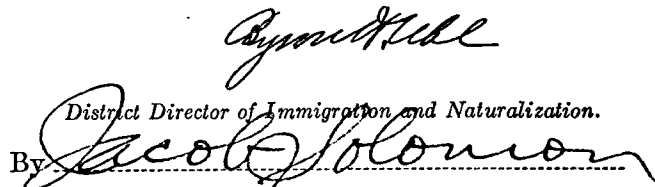 Byron H. Uhl
District Director of Immigration and Naturalization.
By Jacob Solomon